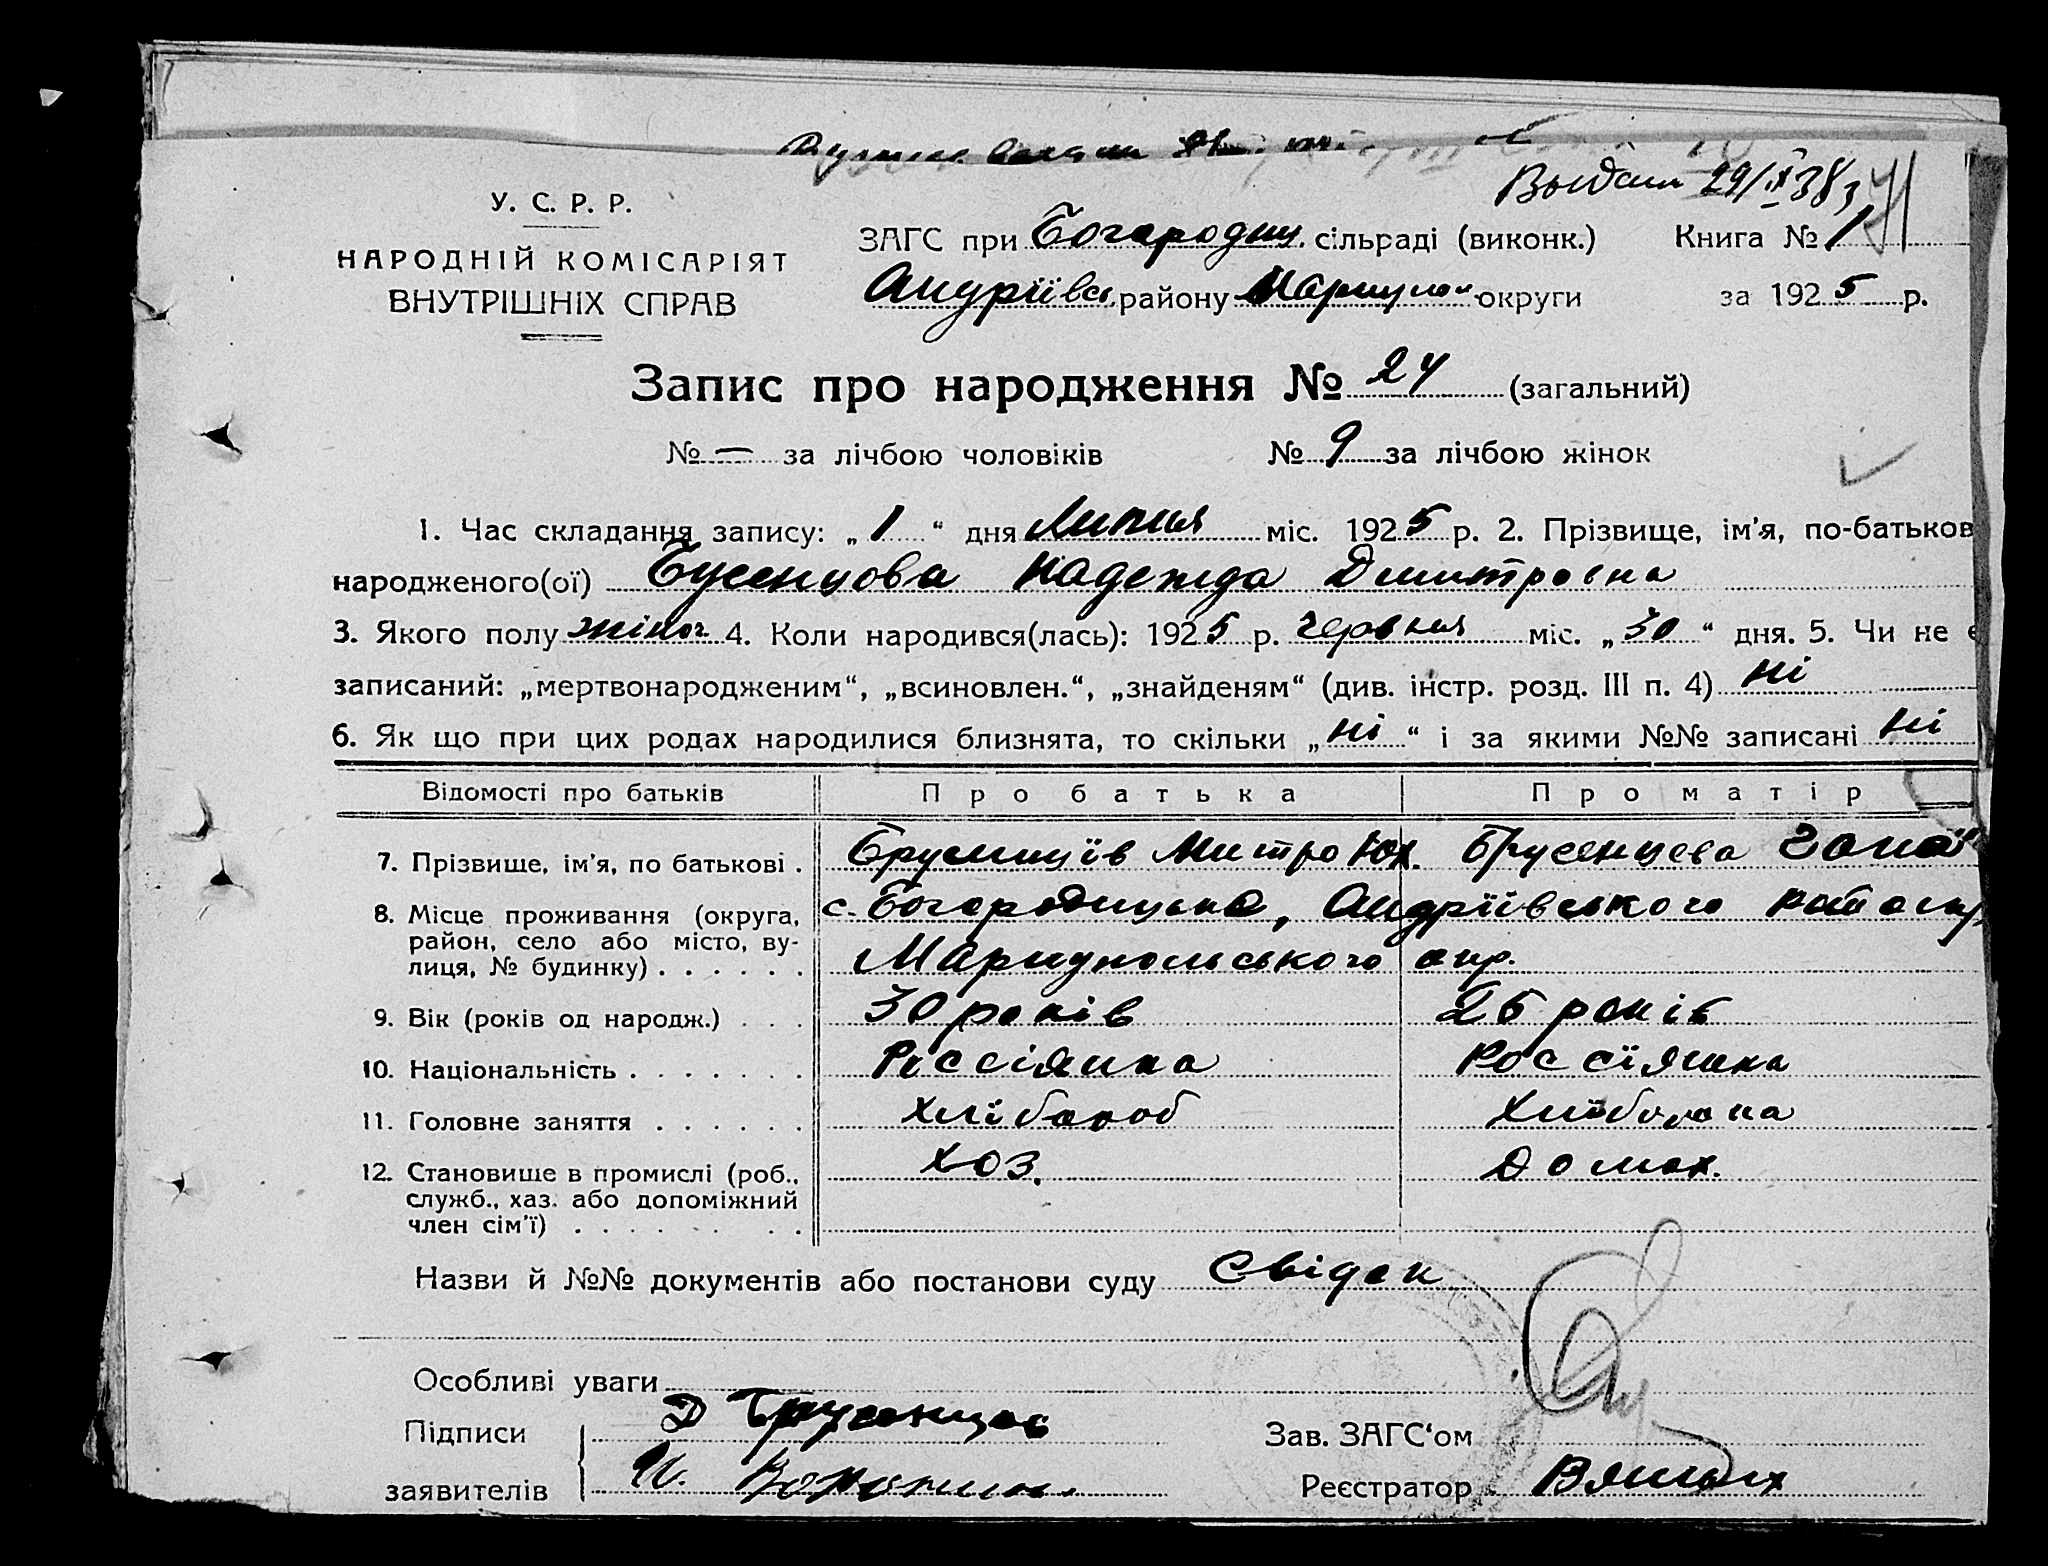 Выдан 29/IX 38
У. С. Р. Р.
НАРОДНІЙ КОМІСАРІЯТ
ВНУТРІШНІХ СПРАВ
ЗАГС при Богородиц. сільраді (виконк.) Книга № 1
Андріївск. району Маріупол. округи за 1925 р.
Запис про народження № 24 (загальний)
№ — за лічбою чоловіків № 9 за лічбою жінок
1. Час складання запису: „1“ дня Липня міс. 1925 р. 2. Прізвище, ім'я, по-батьков
народженого(ої) Бусенцова Надежда Дмитровна
3. Якого полу жіноч 4. Коли народився(лась): 1925 р. червня міс. „30“ дня. 5. Чи не є
записаний: „мертвонародженим“, „всиновлен.“, „знайденям“ (див. інстр. розд. III п. 4) ні
6. Як що при цих родах народилися близнята, то скільки „ні“ і за якими №№ записані ні
Відомості про батьків Про батька Про матір
7. Прізвище, ім'я, по батькові . Брусинціїв Митро Юх. Брусенцева
8. Місце проживання (округа, с. Богородицьке, Андріївського
район, село або місто, ву-
лиця, № будинку) . . . . . . Мариупольського окр.
9. Вік (років од народж.) . . . 30 років 25 років
10. Національність . . . . . . . Россіянка Россіянка
11. Головне заняття . . . . . . хлібороб Хлібороб
12. Становище в промислі (роб., хоз. домох.
служб., хаз. або допоміжний
член сім'ї) . . . . . . .
Назви й №№ документів або постанови суду Свідок
Особливі уваги
Підписи Д Брусенцов Зав. ЗАГС'ом
заявителів И. Реєстратор Вялых